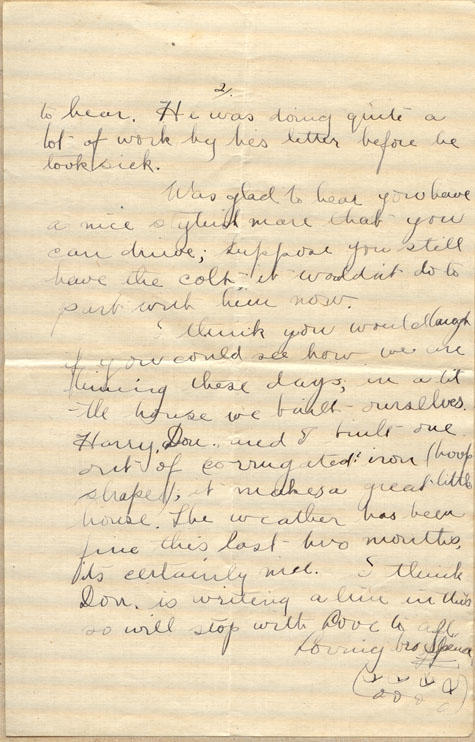 2/.
to hear. He was doing quite a
lot of work by his letter before he
took sick.
Was glad to hear you have
a nice stylish mare that you
can drive; suppose you still
have the colt it wouldn't do to
part with him now.
I think you would laugh
if you could see how we are
these days, in a
little house we built ourselves.
Harry, Don., and I built one
out of corrugated iron (hoop
shaped), it makes a great little
house. The weather has been
fine this last two months,
its certainly nice. I think
Don. is writing a line in this
so will stop with Love to all
Loving bro